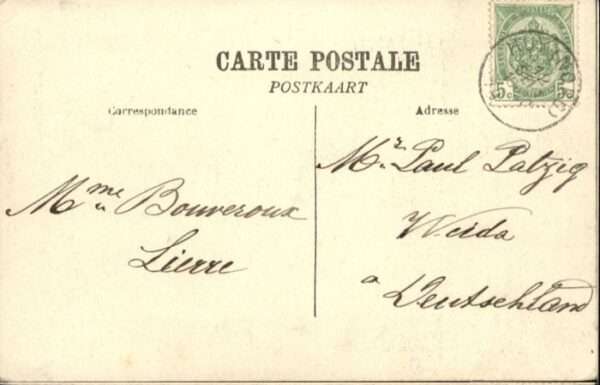 CARTE POSTALE
POSTKAART
Correspondance
Adresse
Mme Bouveroux
Lierre
Mr. Paul Patzig
Weida
a
Deutschland
5c 5c